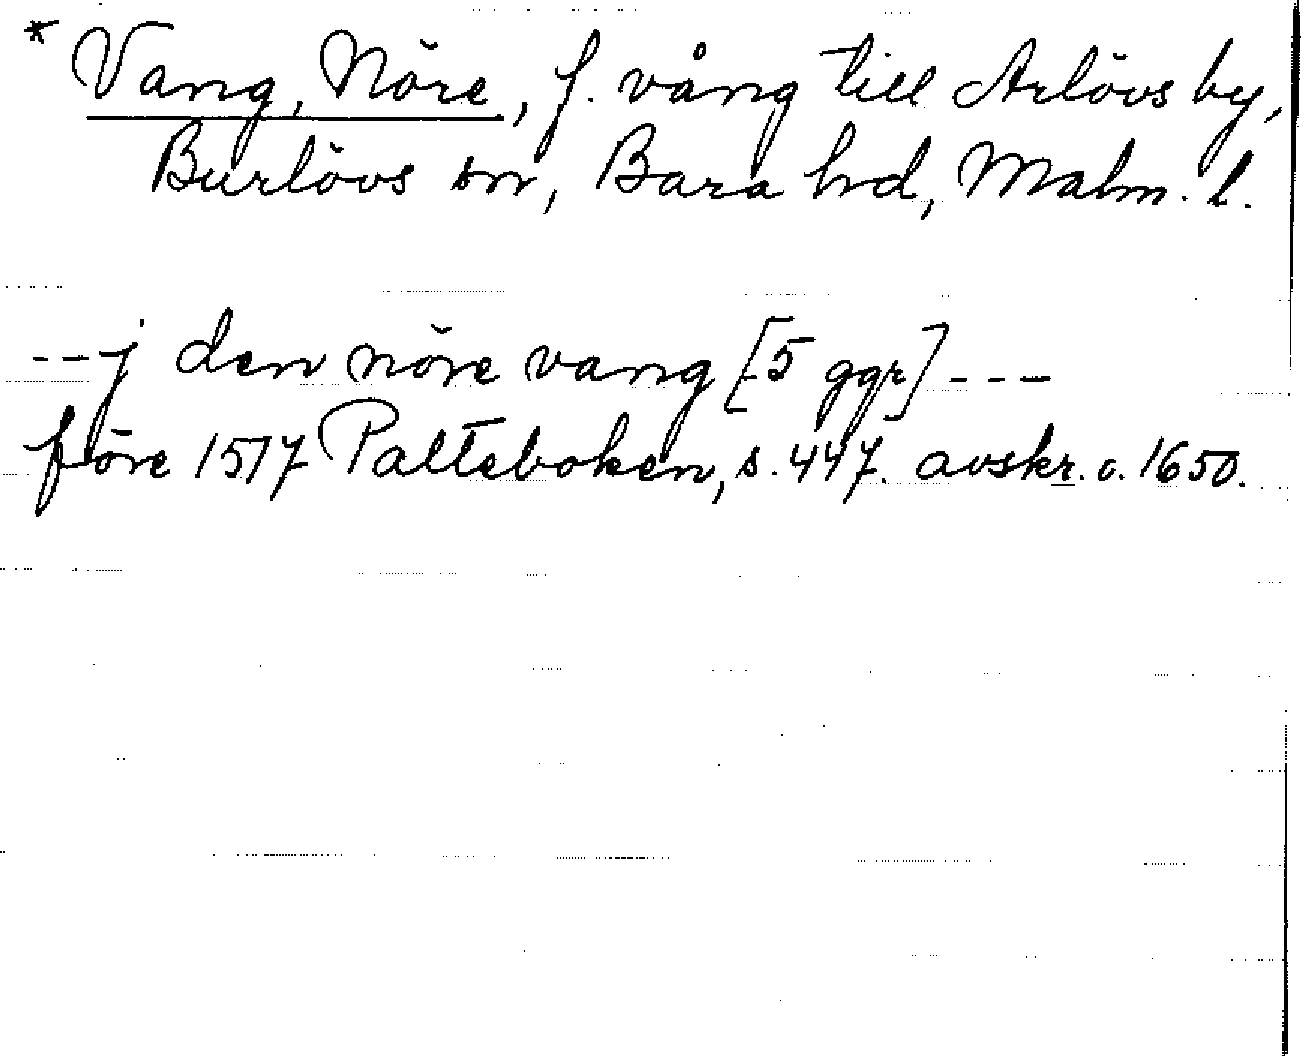 * Vang, Nöre, f. vång till Arlövs by,
Burlövs sn, Bara hd, Malm. l.
--j den nöre vang [5 ggr] ---
före 1517 Palteboken, s. 447. avskr. c. 1650.